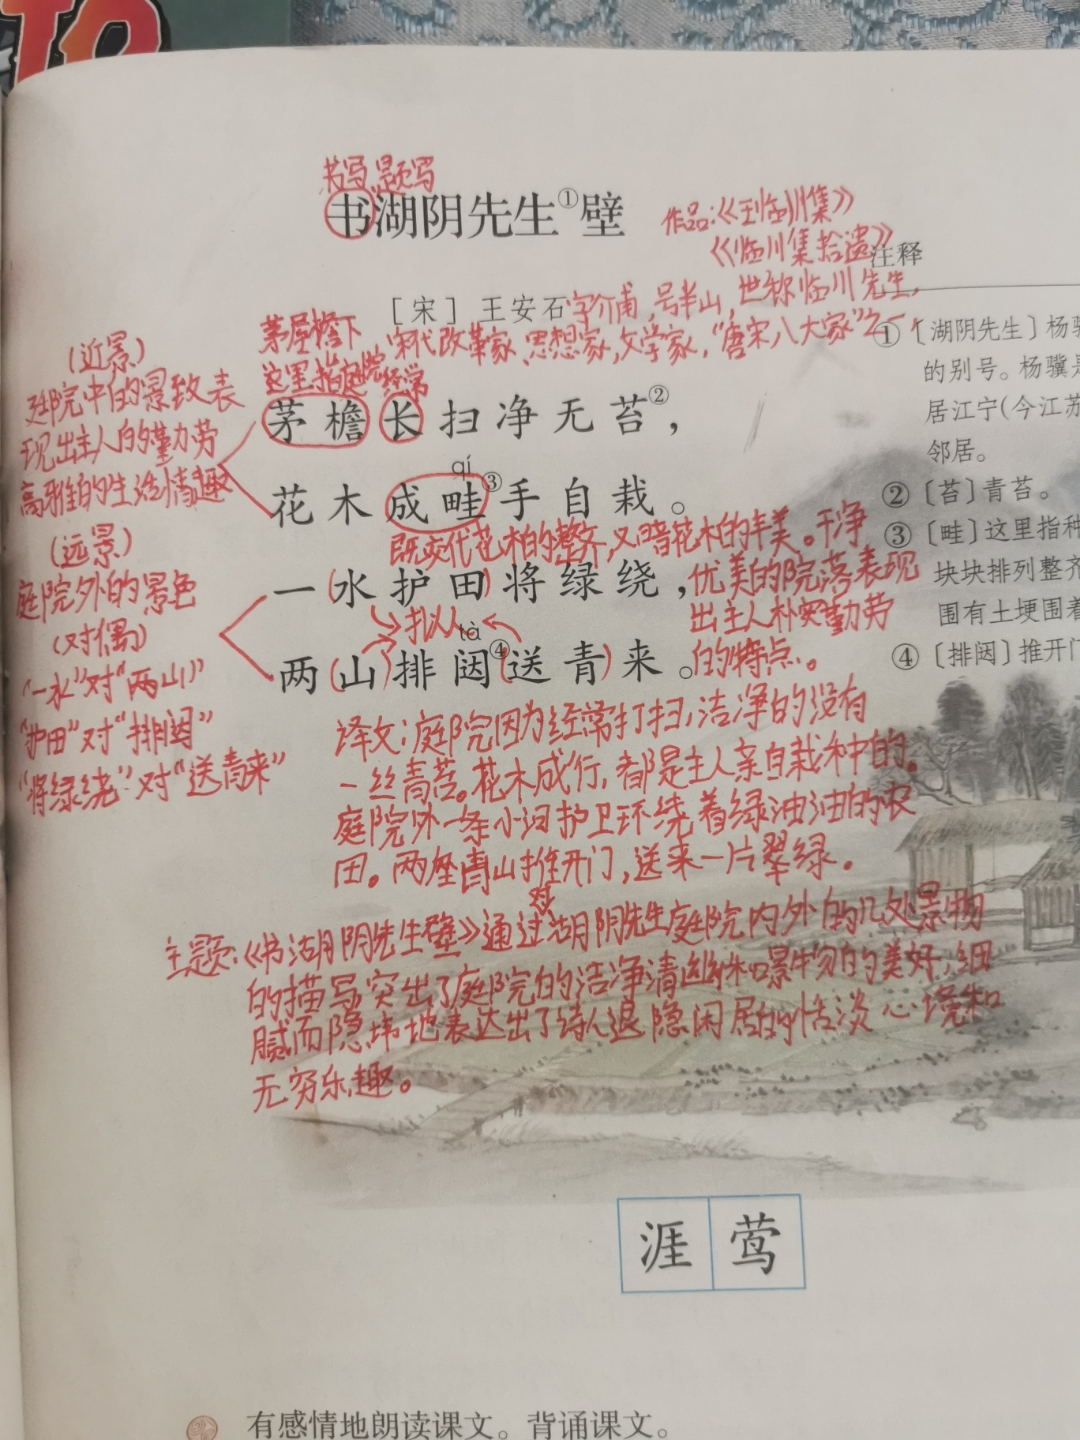 书写、题写
书湖阴先生①壁
作品:《王临川集》
《临川集拾遗》
注释
[宋] 王安石 字介甫,号半山,世称临川先生,
宋代改革家、思想家,文学家,“唐宋八大家”之一
茅屋檐下
这里指庭院
经常
茅檐长扫净无苔②,
qí
花木成畦③手自栽。
既交代花木的整齐,又暗花木的丰美。干净
优美的院落表现
出主人朴实勤劳
的特点。
一水护田将绿绕,
拟人
tà
两山排闼④送青来。
(近景)
庭院中的景致表
现出主人的勤劳
高雅的生活情趣
(远景)
庭院外的景色
(对偶)
“一水”对“两山”
“护田”对“排闼”
“将绿绕”对“送青来”
译文:庭院因为经常打扫,洁净的没有
一丝青苔。花木成行,都是主人亲自栽种的。
庭院外一条小河护卫环绕着绿油油的农
田。两座青山推开门,送来一片翠绿。
对
主题:《书湖阴先生壁》通过湖阴先生庭院内外的几处景物
的描写突出了庭院的洁净清幽和景物的美好,细
腻而隐讳地表达出了诗人退隐闲居的恬淡心境和
无穷乐趣。
①〔湖阴先生〕杨骥
的别号。杨骥是
居江宁(今江苏
邻居。
②〔苔〕青苔。
③〔畦〕这里指种
块块排列整齐
围有土埂围着
④〔排闼〕推开门
涯 莺
有感情地朗读课文。背诵课文。